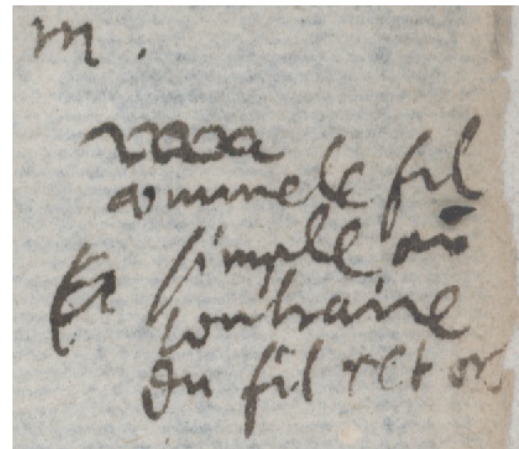 m .
comme le fil
& simple au
contraire
du fil retors